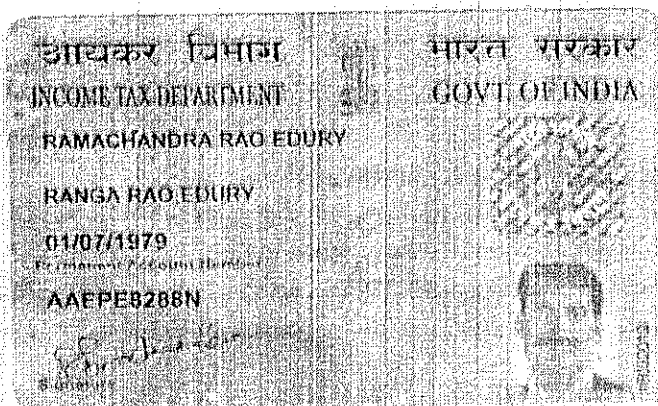 आयकर विभाग
भारत सरकार
INCOME TAX DEPARTMENT
GOVT. OF INDIA
RAMACHANDRA RAO EDURY
RANGA RAO EDURY
01/07/1979
Permanent Account Number
AAEPE8288N
Signature